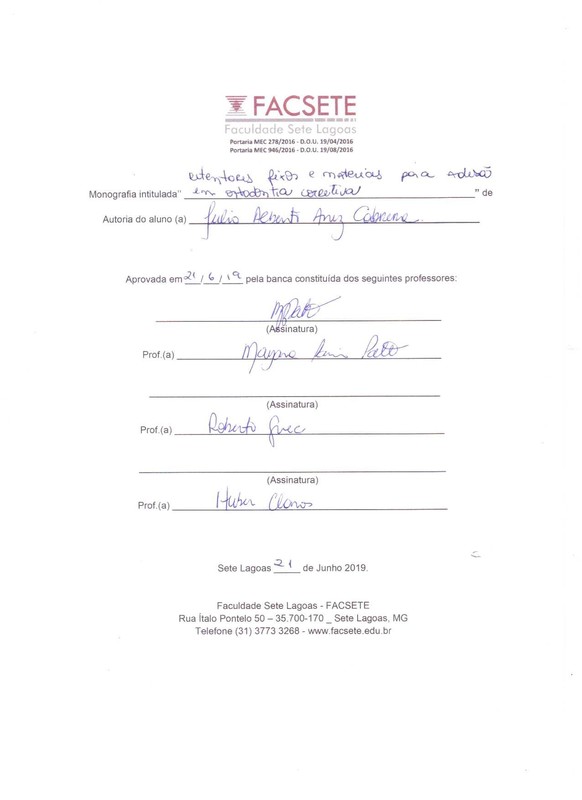 FACSETE
Faculdade Sete Lagoas
Portaria MEC 278/2016 - D.O.U. 19/04/2016
Portaria MEC 946/2016 - D.O.U. 19/08/2016
retentores fixos e materias para adesão
Monografia intitulada" em ortodontia corretiva " de
Autoria do aluno (a) Julio Alberto Anez Cabrera.
Aprovada em 21/6/19 pela banca constituída dos seguintes professores:
(Assinatura)
Prof.(a) Mayra Patto
(Assinatura)
Prof.(a) Roberto Grec
(Assinatura)
Prof.(a) Huber Claros
Sete Lagoas 21 de Junho 2019.
Faculdade Sete Lagoas - FACSETE
Rua Ítalo Pontelo 50 – 35.700-170 _ Sete Lagoas, MG
Telefone (31) 3773 3268 - www.facsete.edu.br